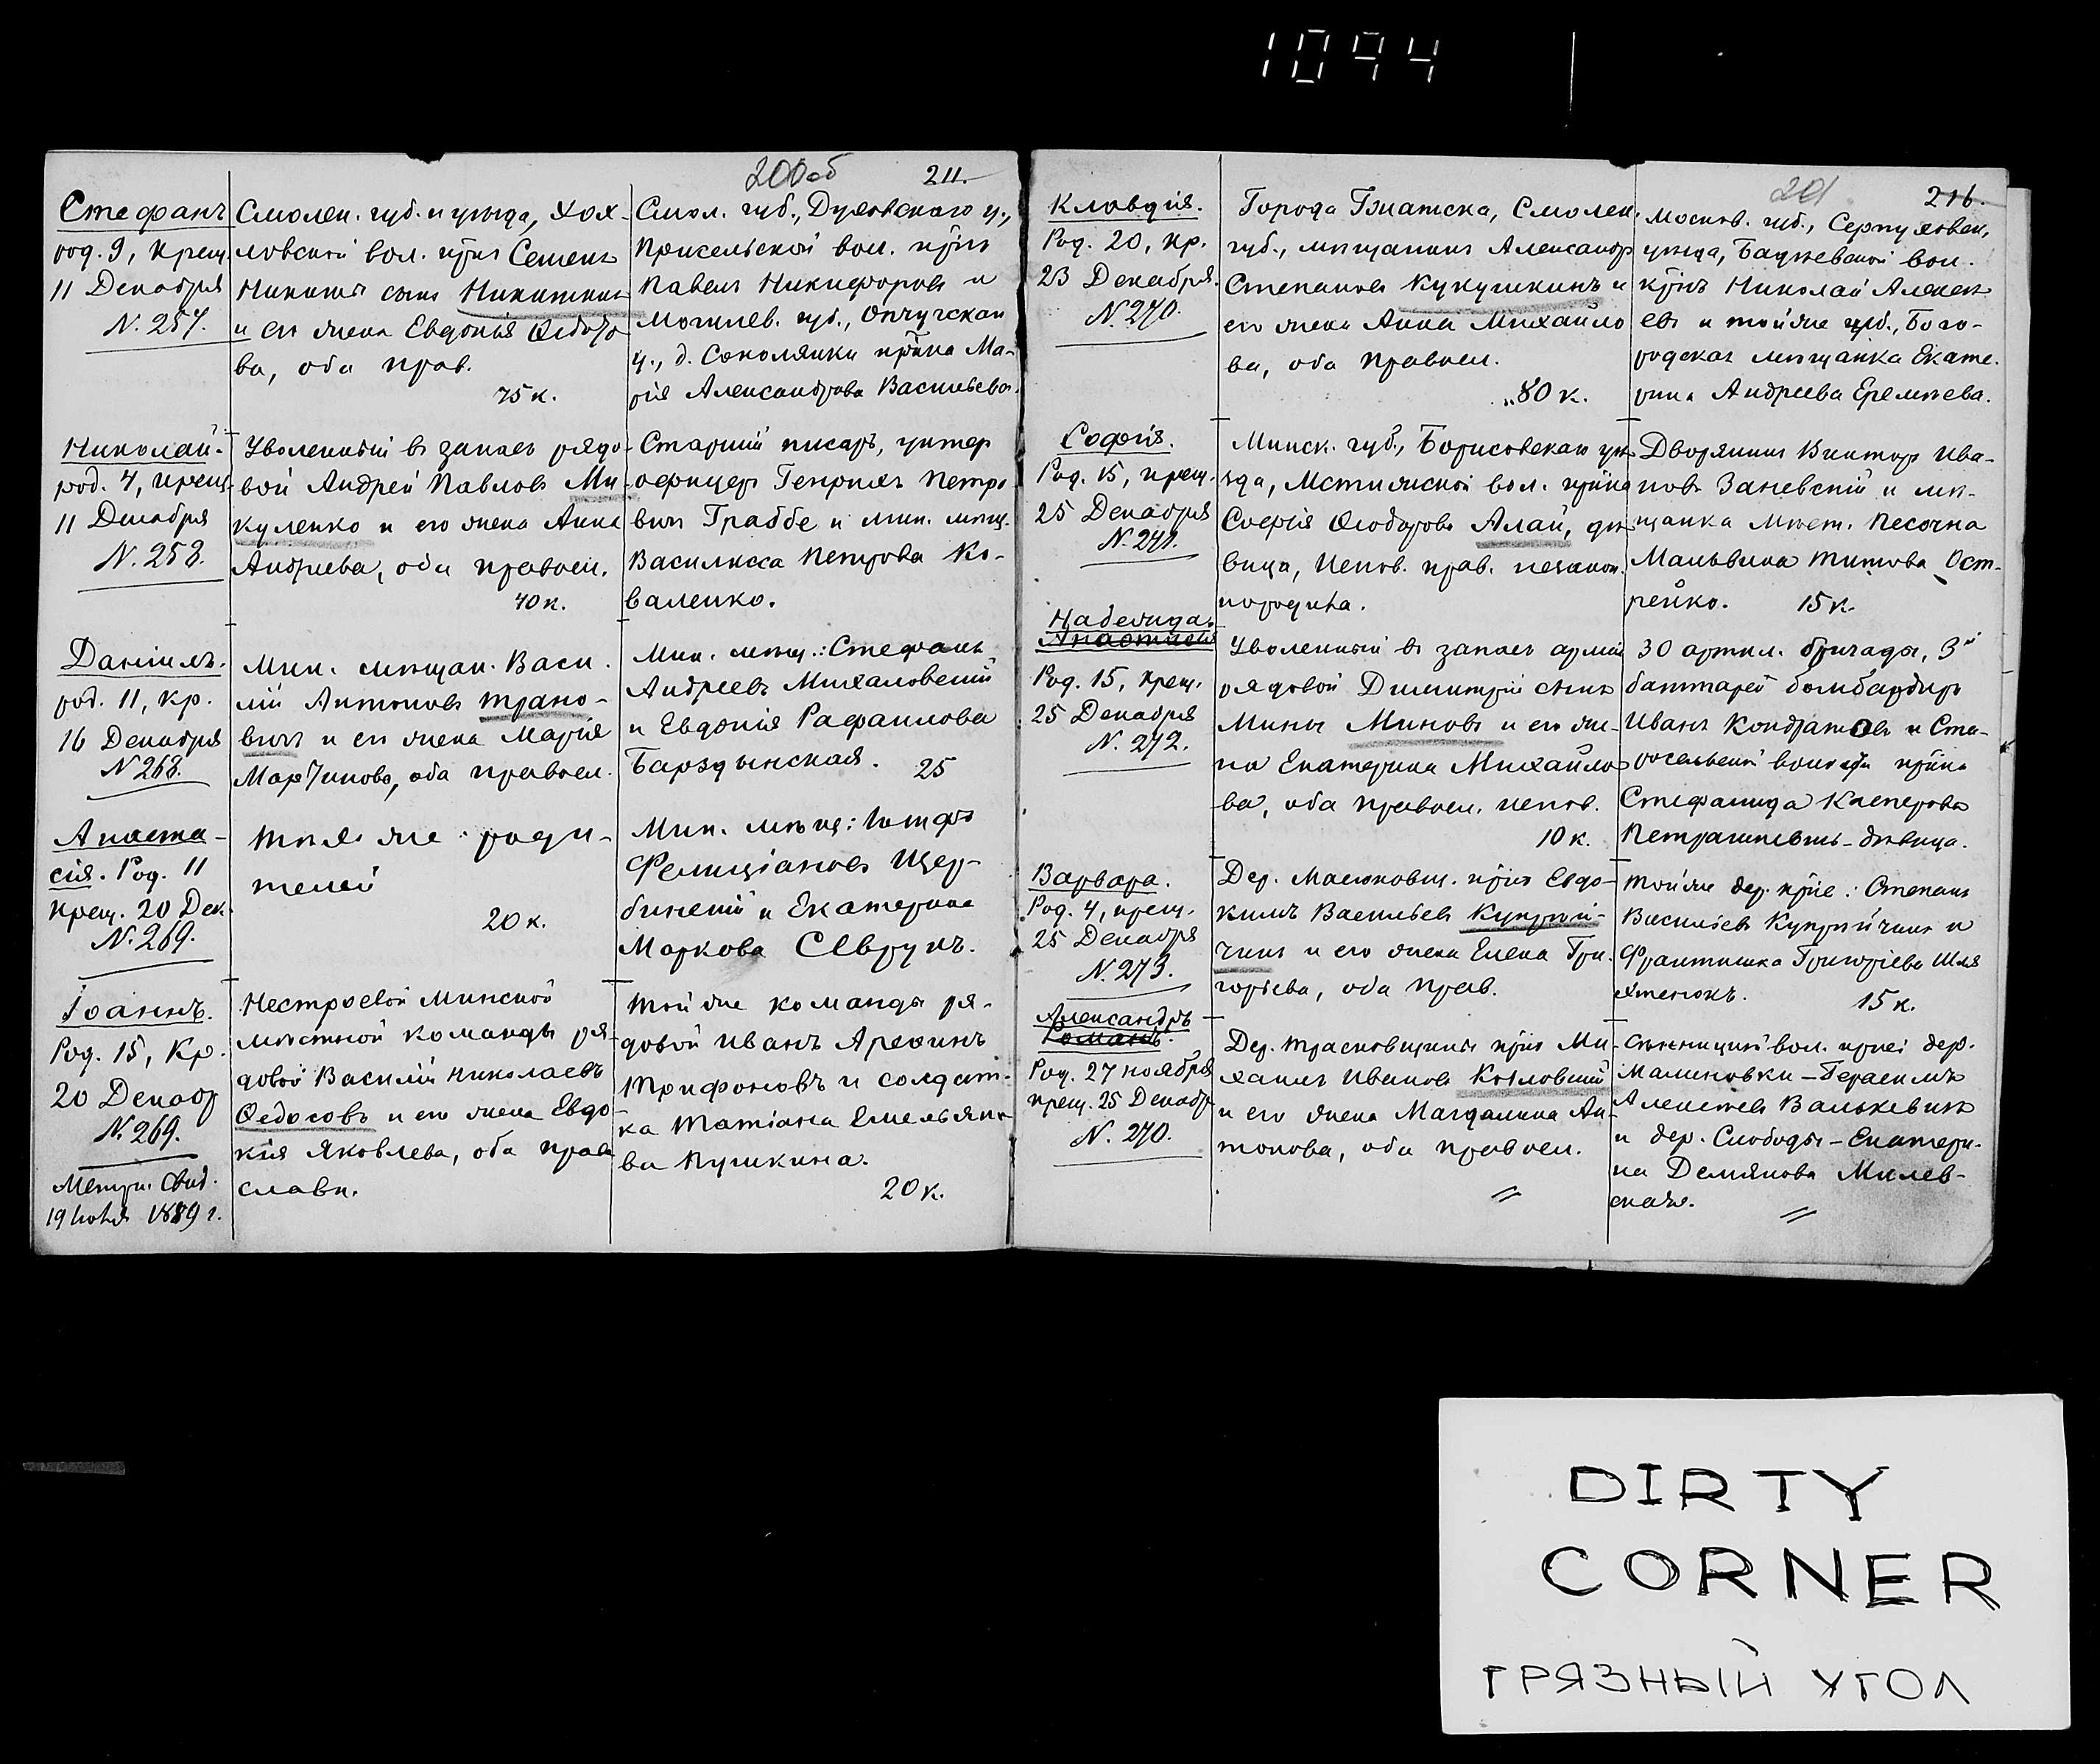 1094
200об 211.
Стефанъ
род. 9, крещ.
11 Декабря
N. 257.
Смолен. губ. и уѣзда, Хох-
ловской вол. кр̃нъ Семенъ
Никитинъ сынъ Никитинъ
и его жена Евдокія Ѳедоро
ва, оба прав.
75 к.
Смол. губ., Духовскаго у.,
Присельской вол. кр̃нъ
Павелъ Никифоровъ и
Могилев. губ.,
у., д. Соколянки кр̃нка Ма-
рія Александрова Васильева.
Николай.
род. 4, крещ.
11 Декабря
N. 258.
Уволенный въ запасъ рядо-
вой Андрей Павловъ Ми-
куленко и его жена Анна
Андреева, оба правосл.
40 к.
Старшій писарь, унтер
офицеръ Генрихъ Петро
вичъ Граббе и мин. мѣщ.
Василисса Петрова Ко-
валенко.
Даніилъ.
род. 11, кр.
16 Декабря
N 268.
Мин. мѣщан. Васи-
лій Антоновъ Трано-
вичъ и его жена Марія
Мартинова, оба правосл.
Мин. мѣщ.: Стефанъ
Андреевъ Михаловскій
и Евдокія Рафаилова
Барздынская. 25
Анаста-
сія. Род. 11
крещ. 20 Дек.
N. 269.
Тѣхъ же роди-
телей
20 к.
Мин. мѣщ: Іосифъ
Фелиціановъ Щер-
бинскій и Екатерина
Маркова Севрукъ.
Іоаннъ.
Род. 15, Кр.
20 Декабр
N. 269.
Метри. Свид.
19 Іюля 1889 г.
Нестроевой Минской
мѣстной команды ря-
довой Василій Николаевъ
Ѳедосовъ и его жена Евдо-
кія Яковлева, оба право
славн.
Той же команды ря-
довой Иванъ Арехинъ
Трифоновъ и солдат-
ка Татіана Емельяно
ва Пушкина.
20 к.
201 216.
Клавдія.
Род. 20, кр.
23 Декабря.
N. 270.
Города Гжатска, Смолен.
губ., мѣщанинъ Александръ
Степановъ Кукушкинъ и
его жена Анна Михайло
ва, оба правосл.
80 к.
Москов. губ., Серпуховск.
уѣзда, Бадѣевской вол.
кр̃нъ Николай Алексѣ
евъ и той же губ., Бого-
родская мѣщанка Екате-
рина Андреева Еремѣева.
Софія.
Род. 15, крещ.
25 Декабря
N. 271.
Минск. губ., Борисовскаго уѣ-
зда, Мстижской вол. кр̃нка
Софія Ѳеодорова Алай, дѣ-
вица, испов. прав. незакон.
породила.
Дворянинъ Викторъ Ива-
новъ Заневскій и мѣ-
щанка мѣст. Песочна
Мальвина Титова Ост-
рейко. 15 к.
Надежда.
Анастасія
Род. 15, крещ.
25 Декабря
N. 272.
Уволенный въ запасъ арміи
рядовой Димитрій сынъ
Мины Миновъ и его же-
на Екатерина Михайло
ва, оба правосл. испов.
10 к.
30 артил. бригады, 3й
баттареи бомбардиръ
Иванъ Кондратовъ и Ста-
росельской волости кр̃нка
Стефанида Касперова
Петрашкевичъ - дѣвица.
Варвара.
Род. 4, крещ.
25 Декабря
N. 273.
Дер. Масюковщ. кр̃нъ Евдо-
кимъ Васильевъ Купрей-
чикъ и его жена Елена Гри-
горьева, оба прав.
Той же дер. кр̃не: Степанъ
Васильевъ Купрейчикъ и
Франтишка Григорьева Шля
хтенокъ. 15 к.
Александръ
Романъ.
Род. 27 ноября
крещ. 25 Декабр
N. 270.
Дер. Трасковщины кр̃нъ Ми-
хаилъ Ивановъ Козловскій
и его жена Магдалина Ан-
тонова, оба правосл.
Сѣнницкой вол. кр̃не дер.
Малиновки - Герасимъ
Алексѣевъ Валькевичъ
и дер. Слободы - Екатери-
на Демянова Милев-
ская.
DIRTY
CORNER
ГРЯЗНЫЙ УГОЛ